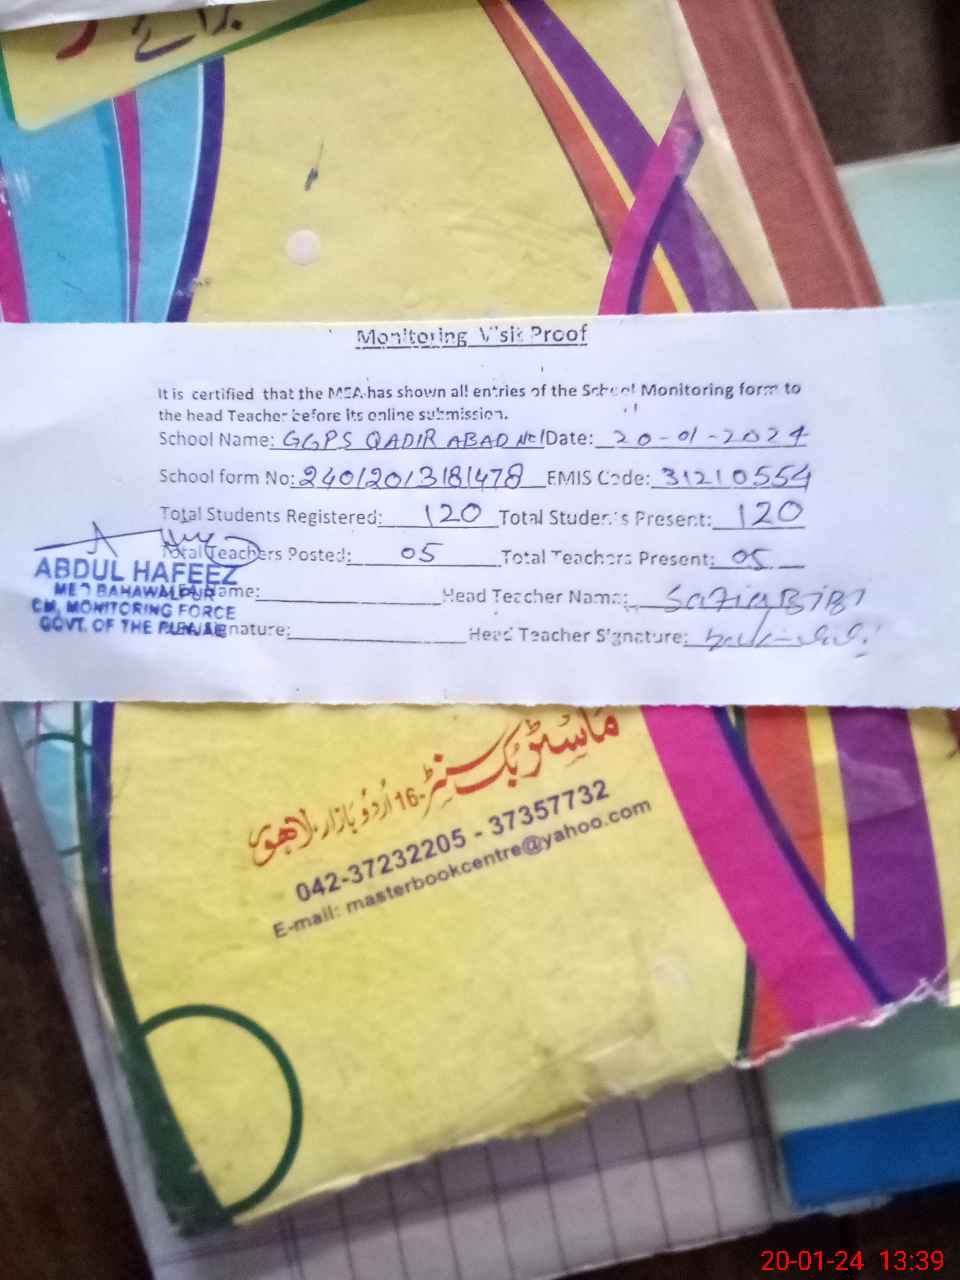 برائے
Monitoring Visit Proof
It is certified that the MEA has shown all entries of the School Monitoring form to
the head Teacher before its online submission.
School Name: GGPS QADIR ABAD No1 Date: 20-01-2024
School form No: 24012013181478 EMIS Code: 31210554
Total Students Registered: 120 Total Students Present: 120
Total Teachers Posted: 05 Total Teachers Present: 05
ABDUL HAFEEZ
Name: Head Teacher Name: Safia BIBI
CM, MONITORING FORCE
GOVT. OF THE PUNJAB
Signature: Head Teacher Signature:
ماسٹر بک سنٹر-16 اُردو بازار، لاہور
042-37232205 - 37357732
E-mail: masterbookcentre@yahoo.com
20-01-24 13:39